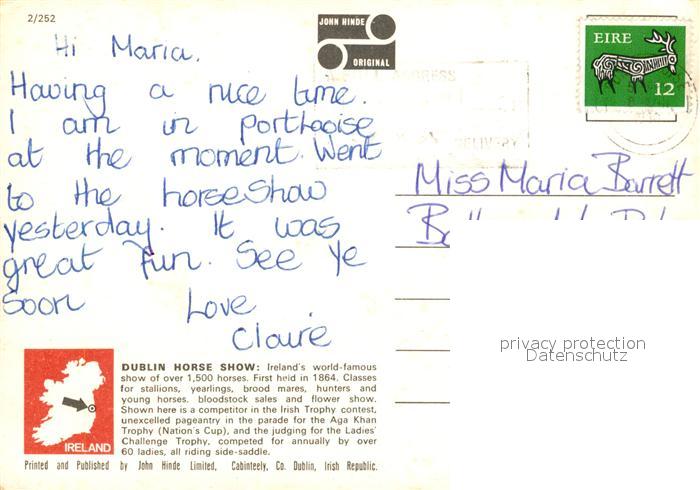 2/252
JOHN HINDE
ORIGINAL
EIRE
12
ADDRESS
DELIVERY
Hi Maria.
Having a nice time.
I am in portlaoise
at the moment. Went
to the horseShow
yesterday. It was
great Fun. See Ye
Soon Love
Claire
Miss Maria Barrett
privacy protection
Datenschutz
IRELAND
DUBLIN HORSE SHOW: Ireland's world-famous
show of over 1,500 horses. First held in 1864. Classes
for stallions, yearlings, brood mares, hunters and
young horses. bloodstock sales and flower show.
Shown here is a competitor in the Irish Trophy contest,
unexcelled pageantry in the parade for the Aga Khan
Trophy (Nation's Cup), and the judging for the Ladies'
Challenge Trophy, competed for annually by over
60 ladies, all riding side-saddle.
Printed and Published by John Hinde Limited, Cabinteely, Co. Dublin, Irish Republic.